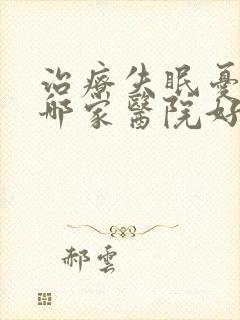 治療失眠憂
哪家醫院好
郝雲